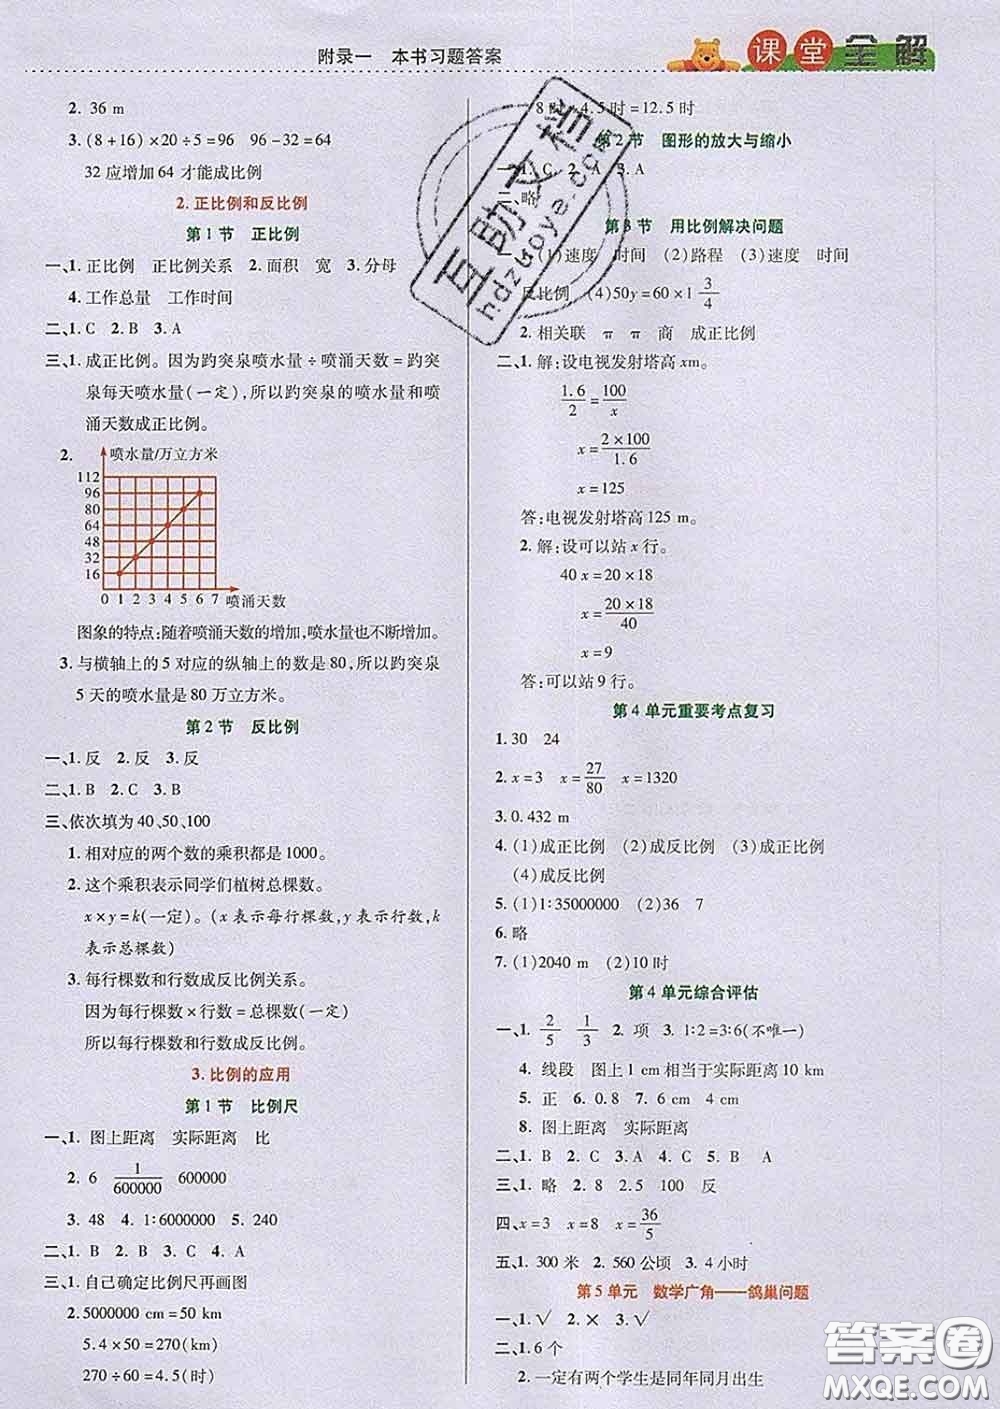 附录一 本书习题答案
课堂全解
2. 36 m
3. (8+16)×20÷5=96 96-32=64
32应增加64才能成比例
2.正比例和反比例
第1节 正比例
一、1.正比例 正比例关系 2.面积 宽 3.分母
4.工作总量 工作时间
二、1.C 2.B 3.A
三、1.成正比例。因为趵突泉喷水量÷喷涌天数=趵突
泉每天喷水量(一定),所以趵突泉的喷水量和喷
涌天数成正比例。
2. 喷水量/万立方米
112
96
80
64
48
32
16
0 1 2 3 4 5 6 7 喷涌天数
图象的特点:随着喷涌天数的增加,喷水量也不断增加。
3.与横轴上的5对应的纵轴上的数是80,所以趵突泉
5天的喷水量是80万立方米。
第2节 反比例
一、1.反 2.反 3.反
二、1.B 2.C 3.B
三、依次填为40、50、100
1.相对应的两个数的乘积都是1000。
2.这个乘积表示同学们植树总棵数。
x×y=k(一定)。(x表示每行棵数,y表示行数,k
表示总棵数)
3.每行棵数和行数成反比例关系。
因为每行棵数×行数=总棵数(一定)
所以每行棵数和行数成反比例。
3.比例的应用
第1节 比例尺
一、1.图上距离 实际距离 比
2. 6 1/600000 600000
3. 48 4. 1:6000000 5. 240
二、1. B 2. B 3. C 4. A
三、1.自己确定比例尺再画图
2.5000000 cm=50 km
5.4×50=270(km)
270÷60=4.5(时)
8时+4.5时=12.5时
第2节 图形的放大与缩小
一、1. C 2. A 3. A
二、略
第3节 用比例解决问题
(1)速度 时间 (2)路程 (3)速度 时间
反比例 (4)50y=60×1 3/4
2.相关联 π π 商 成正比例
二、1.解:设电视发射塔高xm。
1.6/2=100/x
x=2×100/1.6
x=125
答:电视发射塔高125 m。
2.解:设可以站x行。
40x=20×18
x=20×18/40
x=9
答:可以站9行。
第4单元重要考点复习
1.30 24
2.x=3 x=27/80 x=1320
3.0.432 m
4.(1)成正比例 (2)成反比例 (3)成正比例
(4)成反比例
5.(1)1:35000000 (2)36 7
6.略
7.(1)2040 m (2)10时
第4单元综合评估
一、1. 2/5 1/3 2. 项 3. 1:2=3:6(不唯一)
4. 线段 图上1 cm相当于实际距离10 km
5. 正 6. 0.8 7. 6 cm 4 cm
8. 图上距离 实际距离
二、1. B 2. C 3. A 4. C 5. B A
三、1. 略 2. 8 2.5 100 反
四、x=3 x=8 x=36/5
五、1. 300米 2. 560公顷 3. 4小时
第5单元 数学广角——鸽巢问题
一、1.√ 2.× 3.√
二、1.6个
2.一定有两个学生是同年同月出生
互助文档
hdzuoye.com
答案圈
MXQE.COM